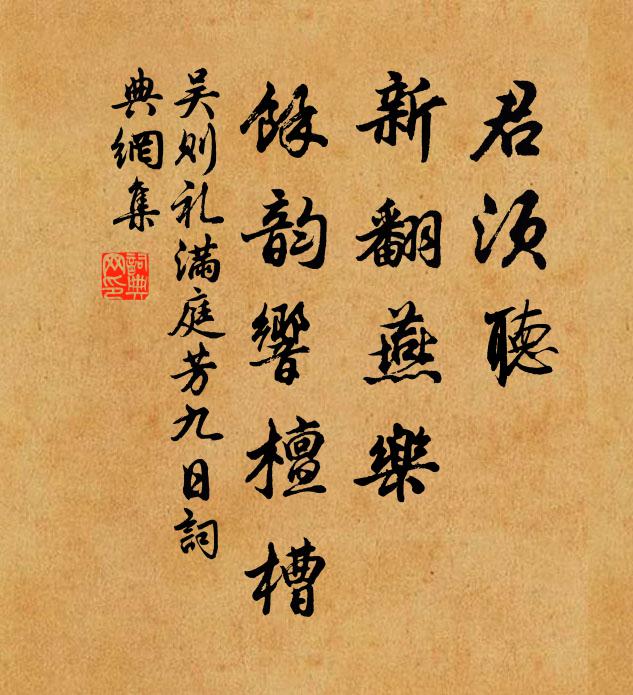 君須聽
新翻燕樂
餘韵響檀槽
吴则礼满庭芳九日詞
典網集
詞典
网印